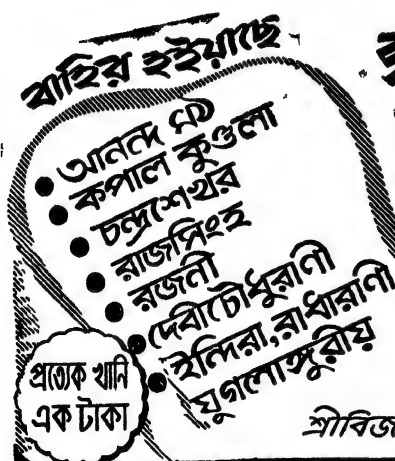 বাহির হইয়াছে
আনন্দ মঠ
কপাল কুণ্ডলা
চন্দ্রশেখর
রাজসিংহ
রজনী
দেবীচৌধুরাণী
ইন্দিরা, রাধারাণী
যুগলাঙ্গুরীয়
প্রত্যেক খানি
এক টাকা